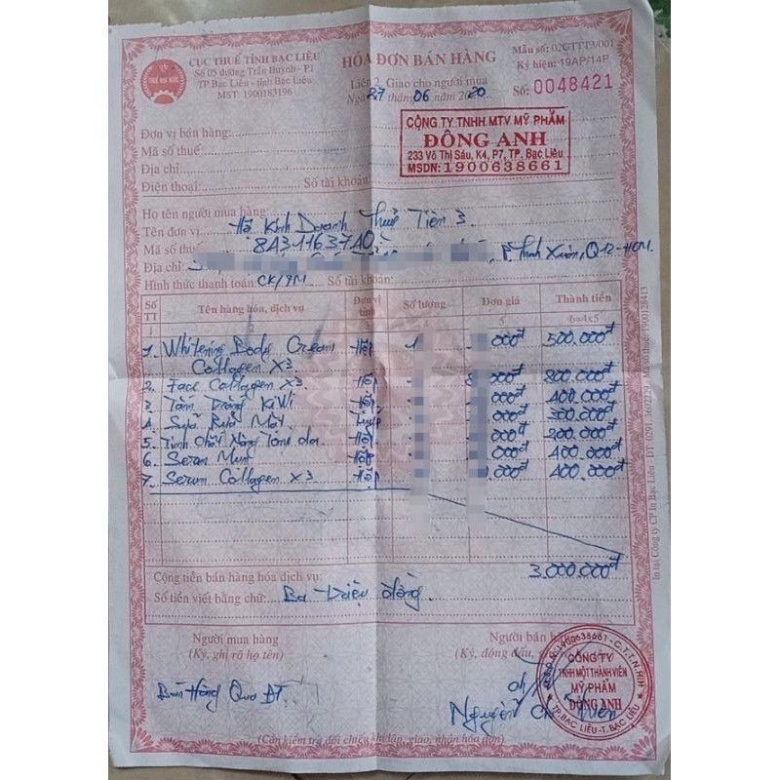 CỤC THUẾ TỈNH BẠC LIÊU
Số 05 đường Trần Huỳnh - P.1
TP Bạc Liêu - tỉnh Bạc Liêu
MST: 1900183196
HÓA ĐƠN BÁN HÀNG
Liên 2: Giao cho người mua
Ngày 27 tháng 06 năm 2020
Mẫu số: 02GTTT3/001
Ký hiệu: 19AP/14P
Số: 0048421
CÔNG TY TNHH.MTV MỸ PHẨM
ĐÔNG ANH
233 Võ Thị Sáu, K4, P7, TP. Bạc Liêu
MSDN: 1900638661
Đơn vị bán hàng:
Mã số thuế:
Địa chỉ:
Điện thoại: Số tài khoản:
Họ tên người mua hàng:
Tên đơn vị: Hộ Kinh Doanh Thuỷ Tiên 3
Mã số thuế: 8A311637A0
Địa chỉ: Xuân, Q12-HCM.
Hình thức thanh toán: CK/TM Số tài khoản:
Số TT Tên hàng hóa, dịch vụ Đơn vị tính Số lượng Đơn giá Thành tiền
1 5 6=4x5
1. Whitening Body Cream Hộp 1 000đ 500.000đ
Collagen X3
2. Face Collagen X3 Hộp 000đ 800.000đ
3 Tắm Trắng KiWi Hộp 000đ 400.000đ
4. Sữa Rửa Mặt Tuýp 000đ 300.000đ
5. Tinh Chất Nâng tone da Hộp 000đ 200.000đ
6. Serum Mụn Hộp 000đ 400.000đ
7. Serum Collagen X3 Hộp 000đ 400.000đ
Cộng tiền bán hàng hóa dịch vụ: 3.000.000đ
Số tiền viết bằng chữ: Ba Triệu đồng.
Người mua hàng
(Ký, ghi rõ họ tên)
Bán Hàng Qua ĐT
Người bán hàng
(Ký, đóng dấu,
Nguyễn
1900638661 - C.T.T.N.H.H
CÔNG TY
TNHH MỘT THÀNH VIÊN
MỸ PHẨM
ĐÔNG ANH
TP. BẠC LIÊU - T. BẠC LIÊU
(Cần kiểm tra đối chiếu khi lập, giao, nhận hóa đơn)
In tại Công ty CP In Bạc Liêu - ĐT: 0291